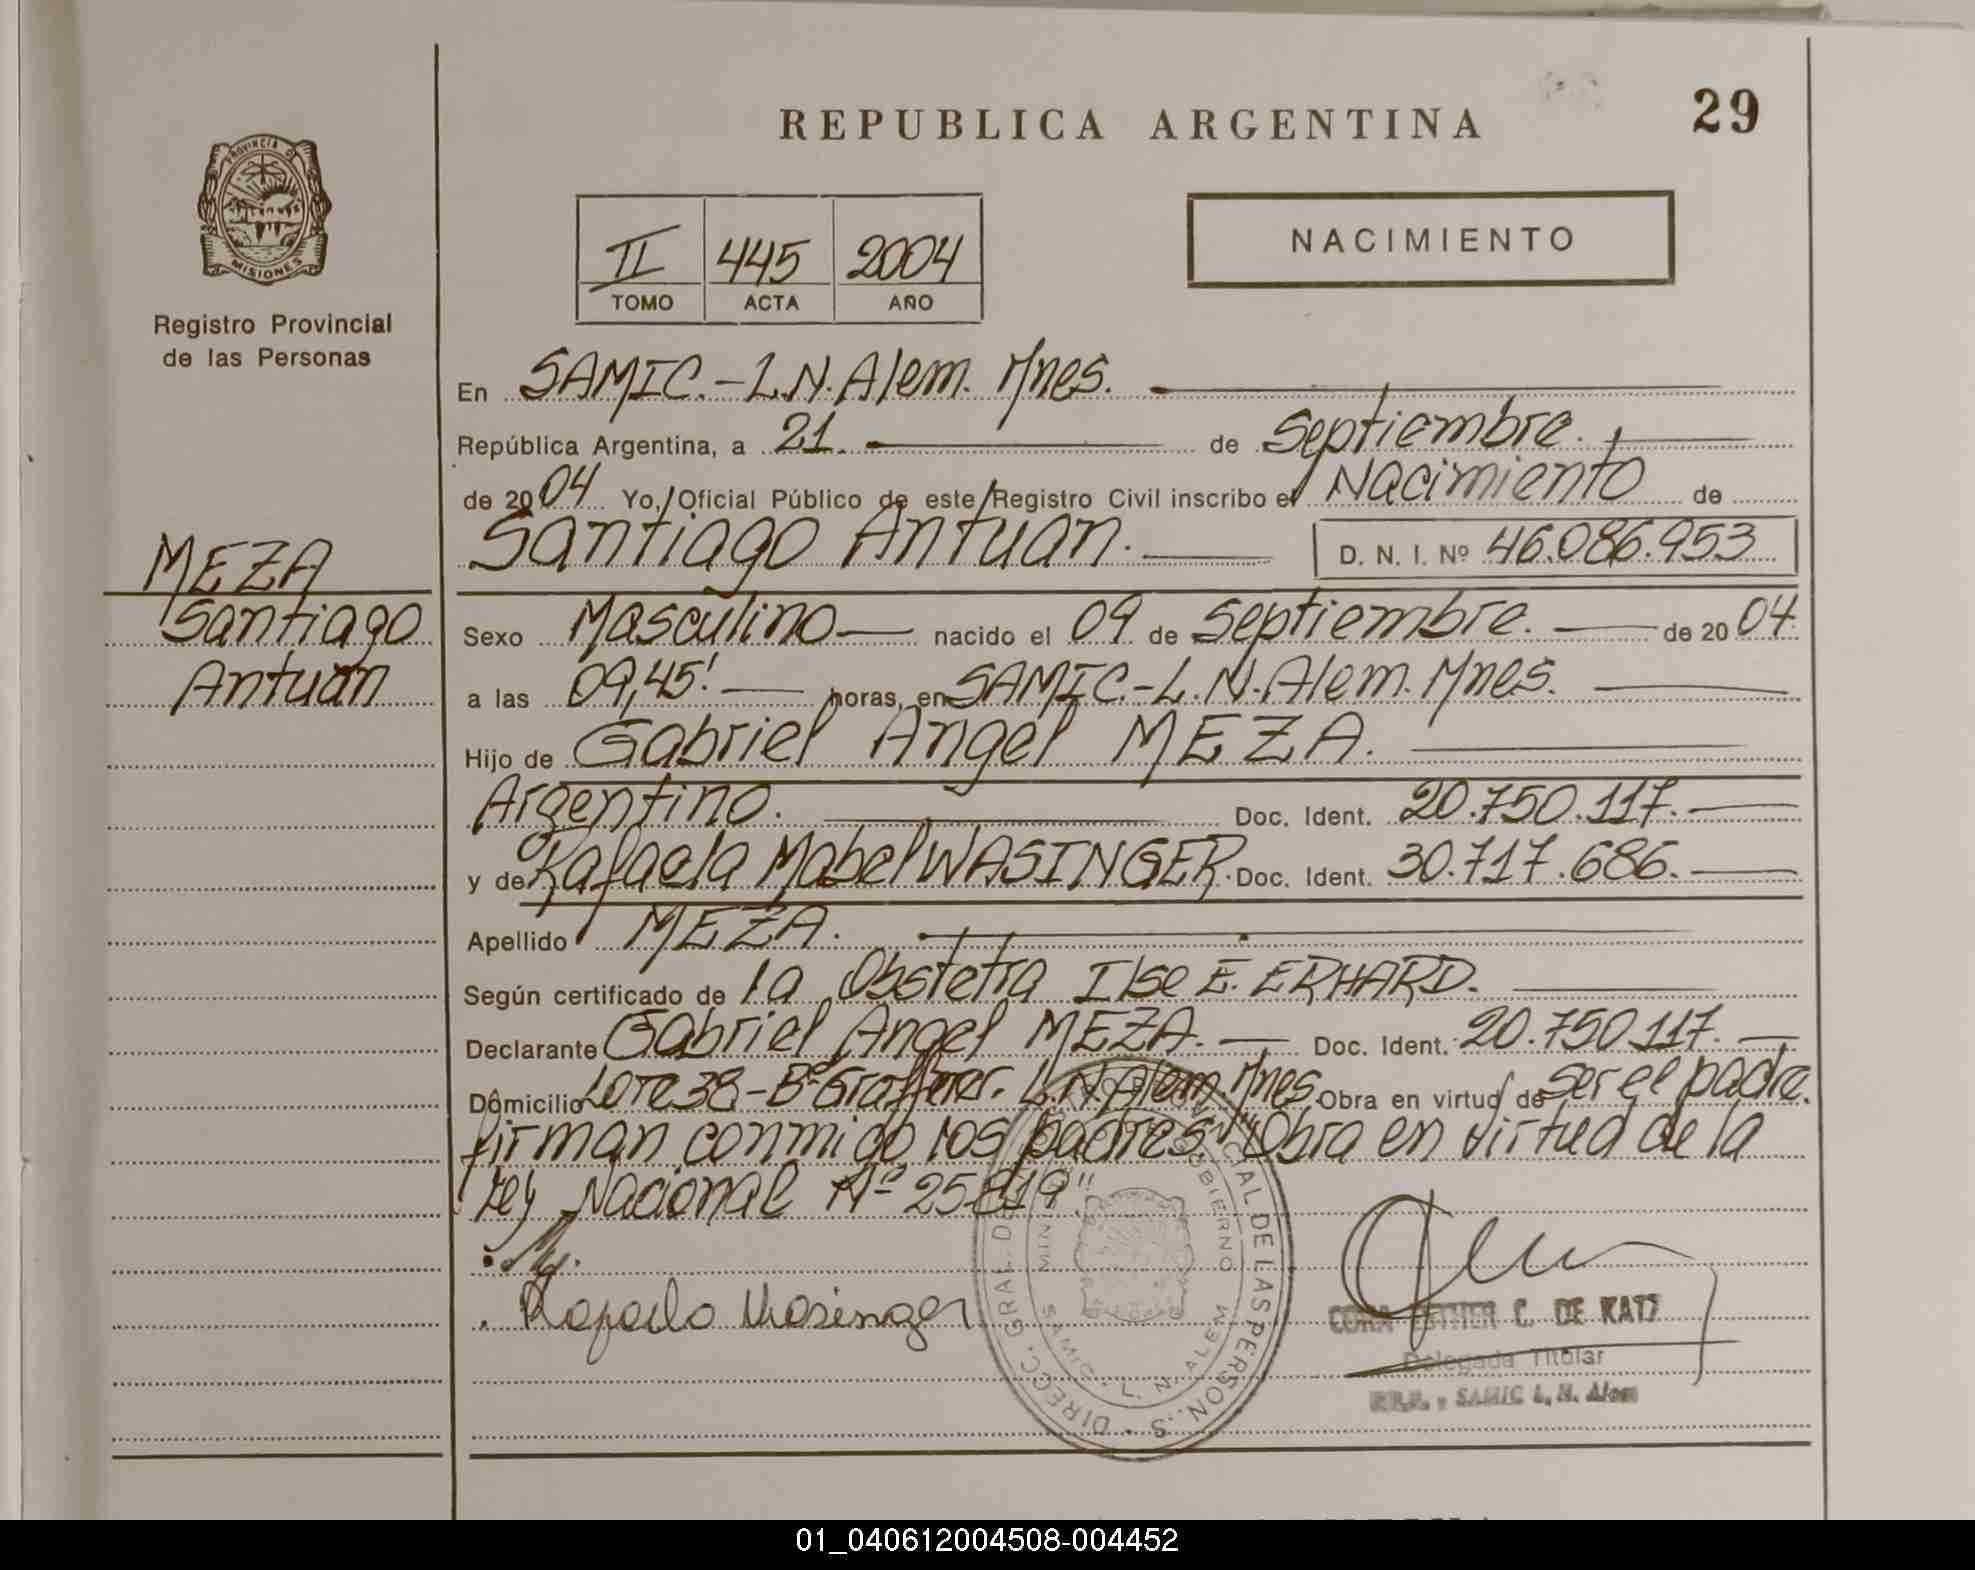 REPUBLICA ARGENTINA
29
PROVINCIA D
MISIONES
Registro Provincial
de las Personas
II 445 2004
TOMO ACTA AÑO
NACIMIENTO
En SAMIC.-L.N.Alem. Mnes.
República Argentina, a 21. de Septiembre.
de 2004 Yo, Oficial Público de este Registro Civil inscribo el Nacimiento de
Santiago Antuan.
D. N. I. Nº 46.086.953
MEZA
Santiago
Antuan
Sexo Masculino nacido el 09 de septiembre. de 2004
a las 09,45' horas, en SAMIC.-L.N.Alem. Mnes.
Hijo de Gabriel Angel MEZA.
Argentino. Doc. Ident. 20.750.117.
y de Rafaela Mabel WASINGER. Doc. Ident. 30.717.686.
Apellido MEZA.
Según certificado de la Obstetra Ilse E. ERHARD.
Declarante Gabriel Angel MEZA. Doc. Ident. 20.750.117.
Domicilio Lote 38-Bº L.N.Alem. Mnes. Obra en virtud de Ser el padre.
firman conmigo los padres. "Obra en virtud de la
Ley Nacional Nº 25819"
Rafaela Wasinger
DIRECC. GRAL. DE PROVINCIAL DE LAS PERSON..S
MIN GOBIERNO
SAMIC - L. N. ALEM
CORA ESTHER C. DE KATZ
Delegada Titular
SAMIC L. N. Alem
01_040612004508-004452